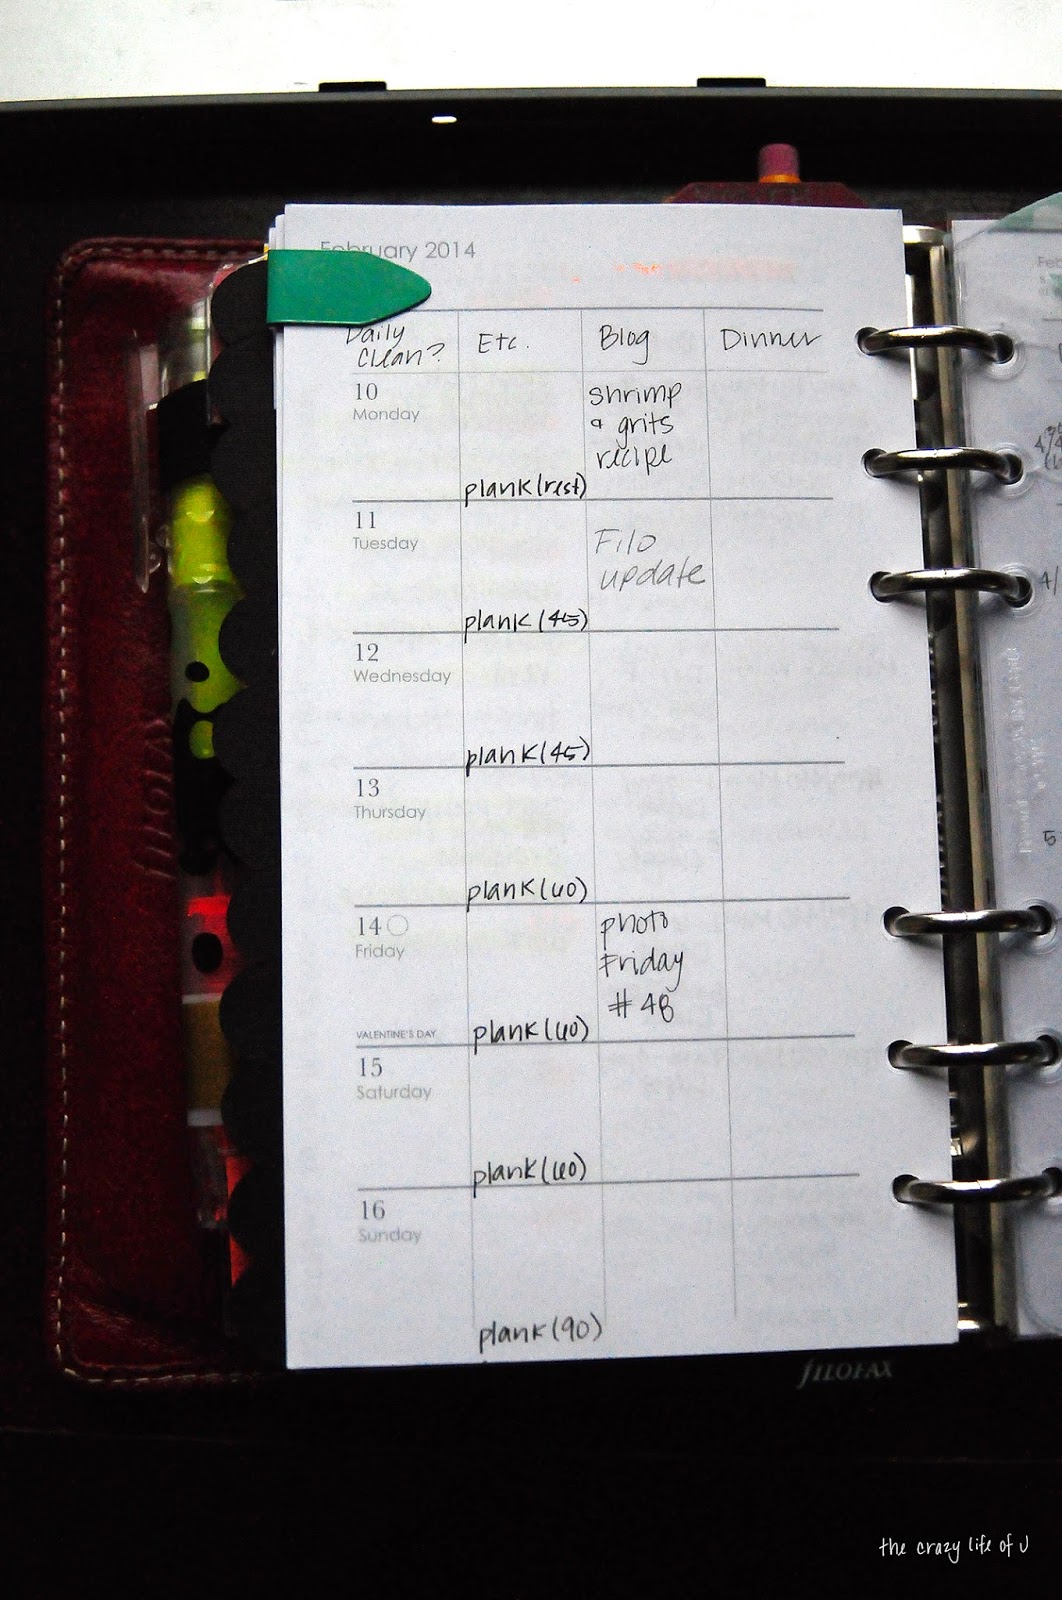 February 2014
Daily
Clean?
Etc.
Blog
Dinner
10
Monday
shrimp
& grits
recipe
plank (rest)
11
Tuesday
Filo
update
plank (45)
12
Wednesday
plank (45)
13
Thursday
plank (60)
14
Friday
photo
Friday
# 48
VALENTINE'S DAY
plank (60)
15
Saturday
plank (60)
16
Sunday
plank (90)
fILOFAX
the crazy life of J